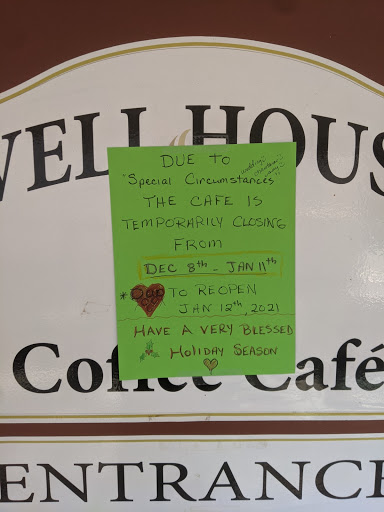 WELL HOUS
DUE TO
"Special Circumstances"
THE CAFE IS
TEMPORARILY CLOSING
FROM
DEC 8th - JAN 11th
* TO REOPEN
JAN 12th, 2021
HAVE A VERY BLESSED
HOLIDAY SEASON
Coffee Café
ENTRANCE